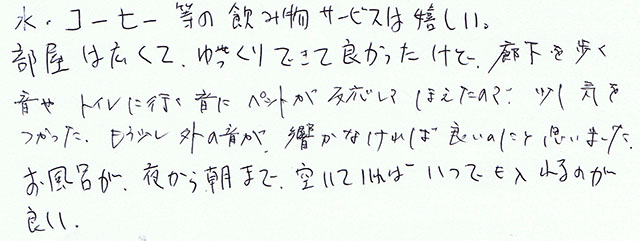 水・コーヒー等の飲み物サービスは嬉しい。
部屋は広くて、ゆっくりできて良かったけど、廊下を歩く
音や トイレに行く音に ペットが 反応して ほえたので、少し気を
つかった。もう少し外の音が、響かなければ 良いのにと思いました。
お風呂が、夜から朝まで、空いていれば いつでも入れるのが
良い。